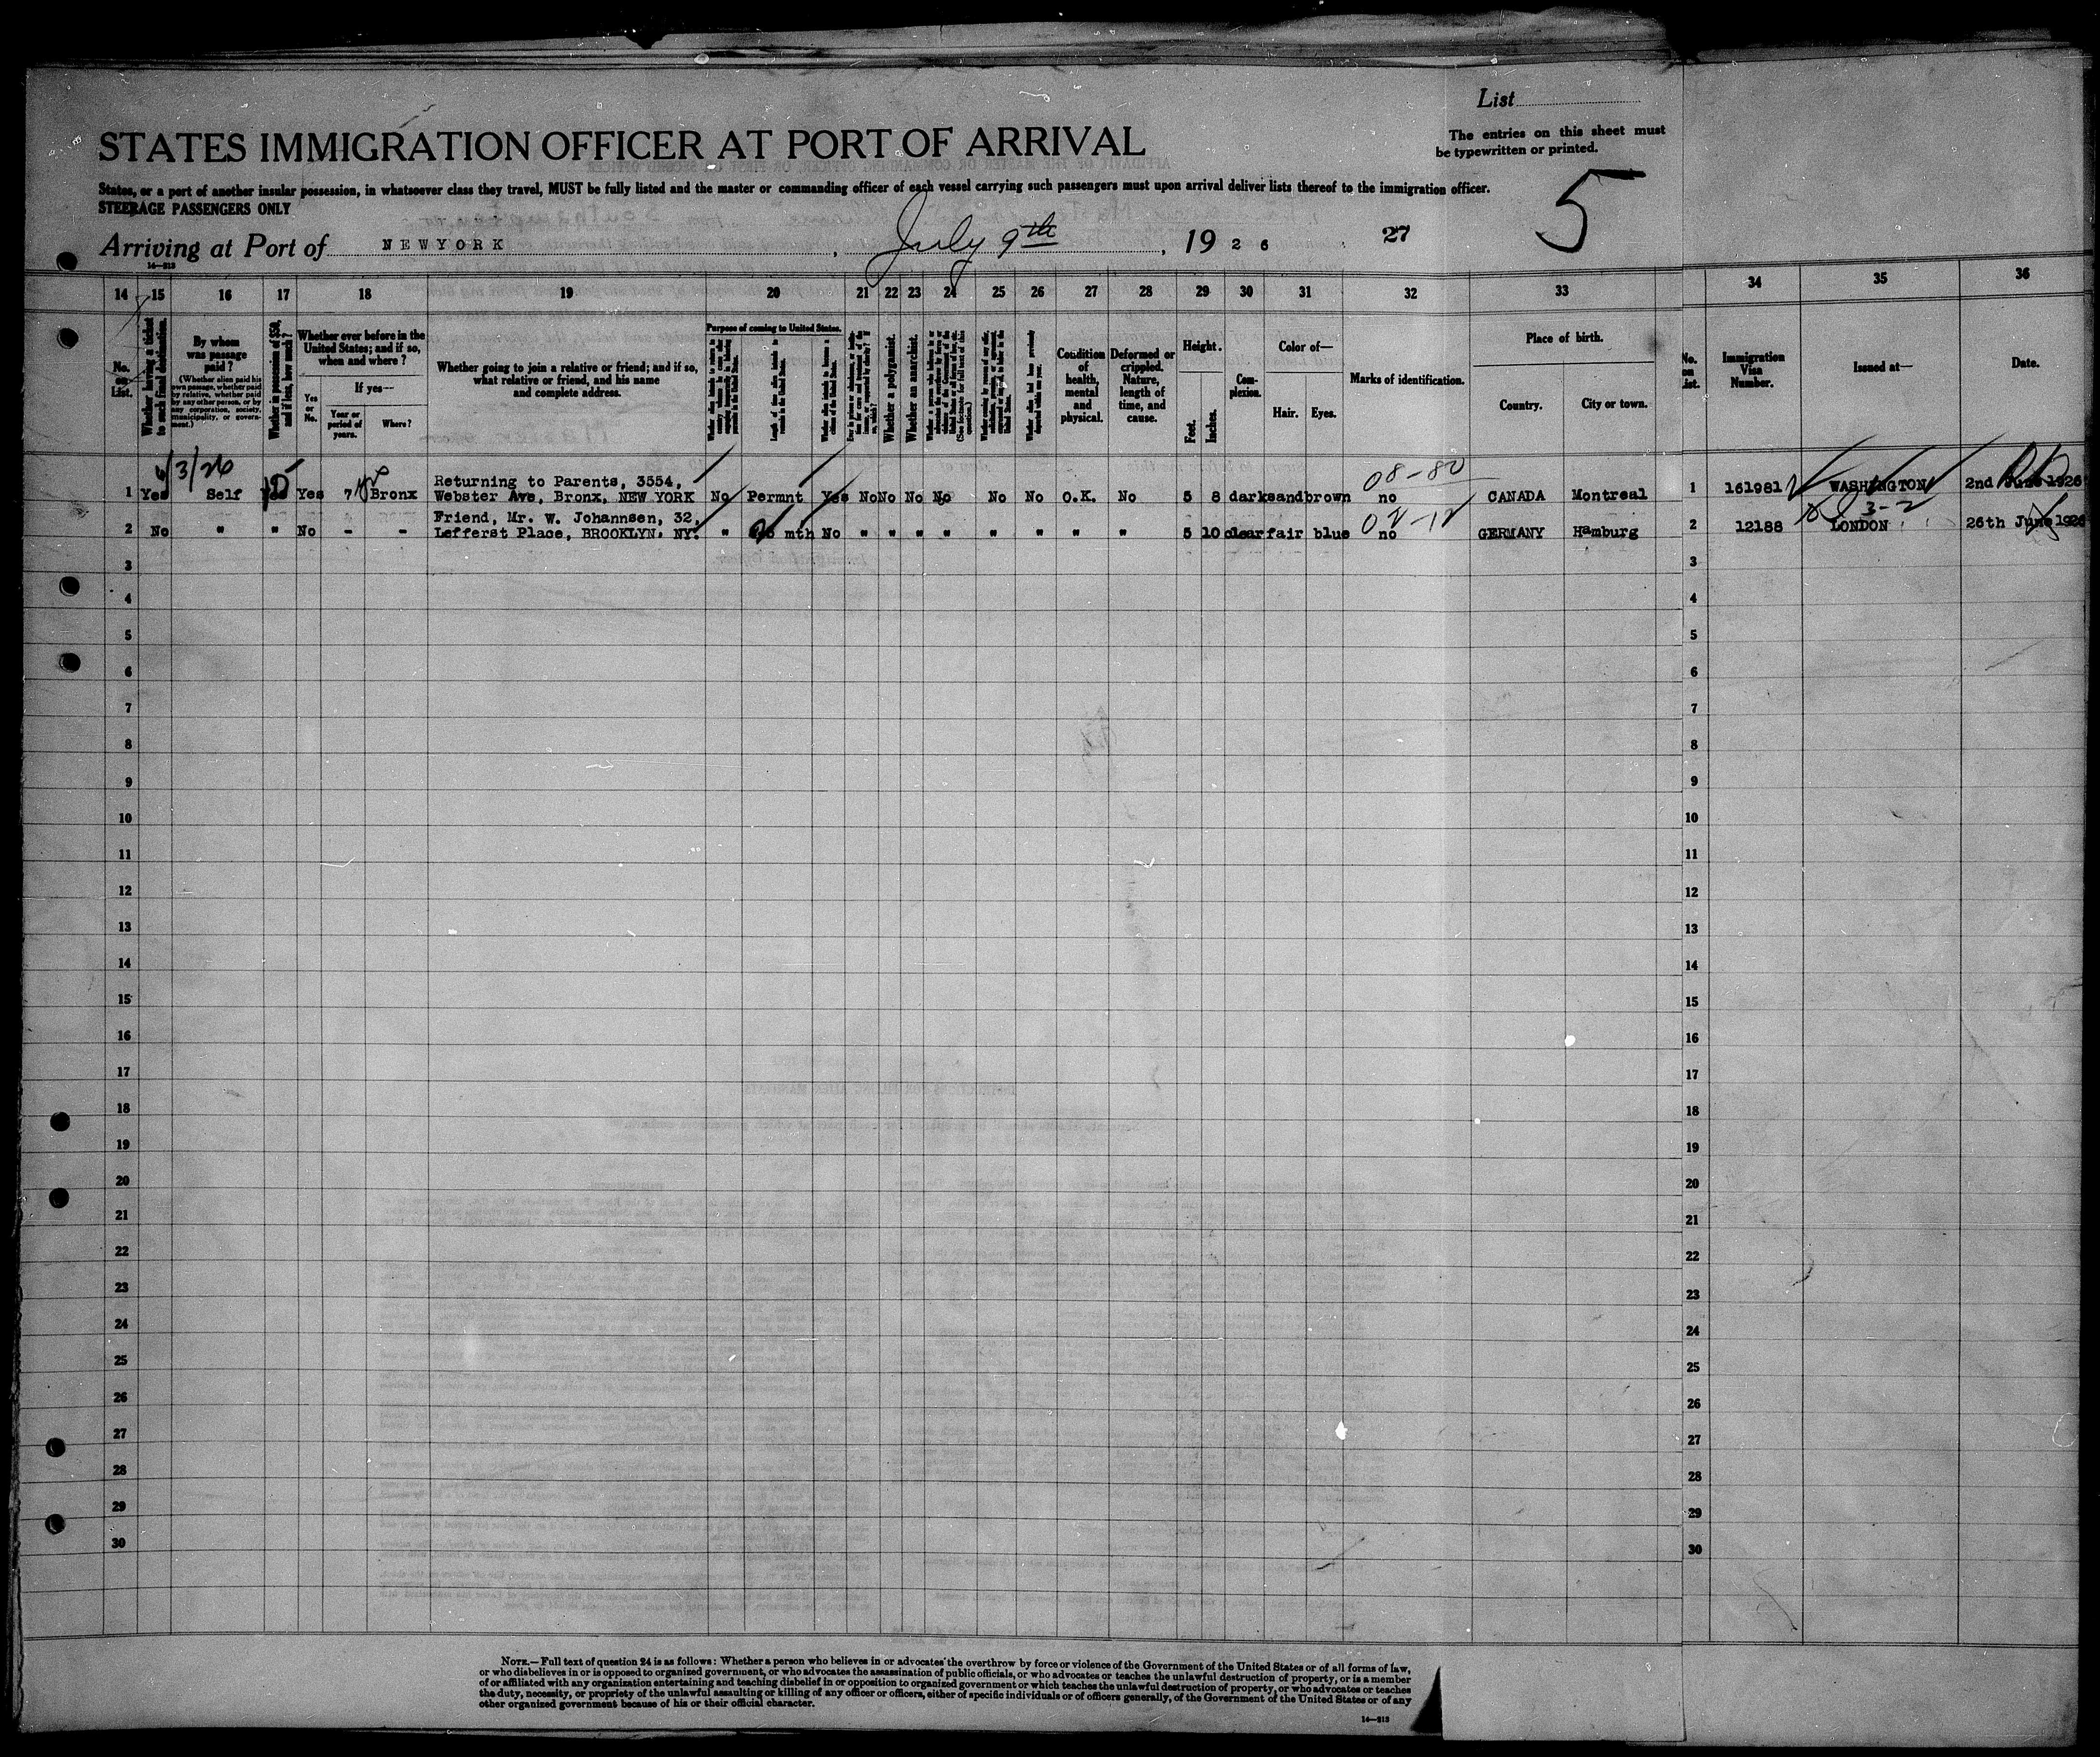 List
STATES IMMIGRATION OFFICER AT PORT OF ARRIVAL
The entries on this sheet must
be typewritten or printed.
States, or a port of another insular possession, in whatsoever class they travel, MUST be fully listed and the master or commanding officer of each vessel carrying such passengers must upon arrival deliver lists thereof to the immigration officer.
STEERAGE PASSENGERS ONLY
5
Arriving at Port of NEWYORK, July 9th, 19 2 6 27
14—213
14 15 16 17 18 19 20 21 22 23 24 25 26 27 28 29 30 31 32 33 34 35 36
No. on List.
Whether having a ticket to such final destination.
By whom was passage paid?
(Whether alien paid his own passage, whether paid by relative, whether paid by any other person, or by any corporation, society, municipality, or government.)
Whether in possession of $50, and if less, how much?
Whether ever before in the United States; and if so, when and where?
Yes or No.
If yes—
Year or period of years.
Where?
Whether going to join a relative or friend; and if so, what relative or friend, and his name and complete address.
Purpose of coming to United States.
Whether a polygamist.
Whether an anarchist.
Condition of health, mental and physical.
Deformed or crippled. Nature, length of time, and cause.
Height.
Feet.
Inches.
Complexion.
Color of—
Hair.
Eyes.
Marks of identification.
Place of birth.
Country.
City or town.
No. on List.
Immigration Visa Number.
Issued at—
Date.
6/3/26
08-80
Returning to Parents, 3554,
1 Yes Self Yes 7 Bronx Webster Ave, Bronx, NEW YORK No Permnt Yes No No No No No No O.K. No 5 8 dark sand brown no CANADA Montreal 1 161981 WASHINGTON 2nd June 1926
3-2
Friend, Mr. W. Johannsen, 32,
02-12
2 No " " No - - Lefferst Place, BROOKLYN, NY. " mth No " " " " " " " " 5 10 clear fair blue no GERMANY Hamburg 2 12188 LONDON 26th June 1926
3 3
4 4
5 5
6 6
7 7
8 8
9 9
10 10
11 11
12 12
13 13
14 14
15 15
16 16
17 17
18 18
19 19
20 20
21 21
22 22
23 23
24 24
25 25
26 26
27 27
28 28
29 29
30 30
NOTE.—Full text of question 24 is as follows: Whether a person who believes in or advocates the overthrow by force or violence of the Government of the United States or of all forms of law,
or who disbelieves in or is opposed to organized government, or who advocates the assassination of public officials, or who advocates or teaches the unlawful destruction of property, or is a member
of or affiliated with any organization entertaining and teaching disbelief in or opposition to organized government or which teaches the unlawful destruction of property, or who advocates or teaches
the duty, necessity, or propriety of the unlawful assaulting or killing of any officer or officers, either of specific individuals or of officers generally, of the Government of the United States or of any
other organized government because of his or their official character.
14—213